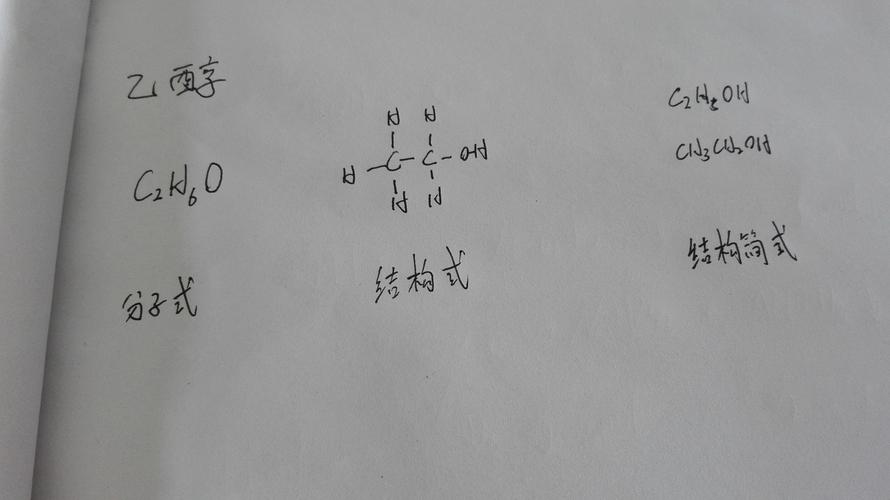 乙醇
C₂H₆O
分子式
H H
H-C-C-OH
H H
结构式
C₂H₅OH
CH₃CH₂OH
结构简式